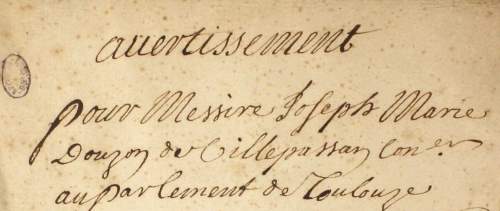 auertissement
pour Messire Joseph Marie
Douzon de Villepassan Con.er
au parlement de Toulouze